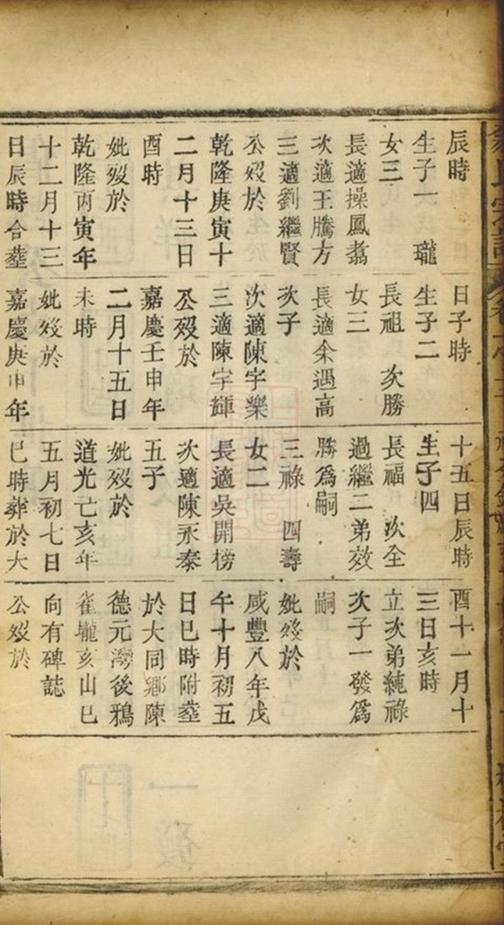 辰時
生子一 瓏
女三
長適操鳳翥
次適王騰方
三適劉繼賢
公歿於
乾隆庚寅十
二月十三日
酉時
妣歿於
乾隆丙寅年
十二月十三
日辰時合塟
日子時
生子二
長祖 次勝
女三
長適余遇高
次子
次適陳宇樂
三適陳宇輝
公歿於
嘉慶壬申年
二月十五日
未時
妣歿於
嘉慶庚申年
十五日辰時
生子四
長福 次全
過繼二弟效
勝爲嗣
三祿 四壽
女二
長適吳開榜
次適陳永泰
五子
妣歿於
道光亡亥年
五月初七日
巳時葬於大
酉十一月十
三日亥時
立次弟純祿
次子一發爲
嗣
妣歿於
咸豐八年戊
午十月初五
日巳時附塟
於大同鄉陳
德元灣後鴉
雀壠亥山巳
向有碑誌
公歿於